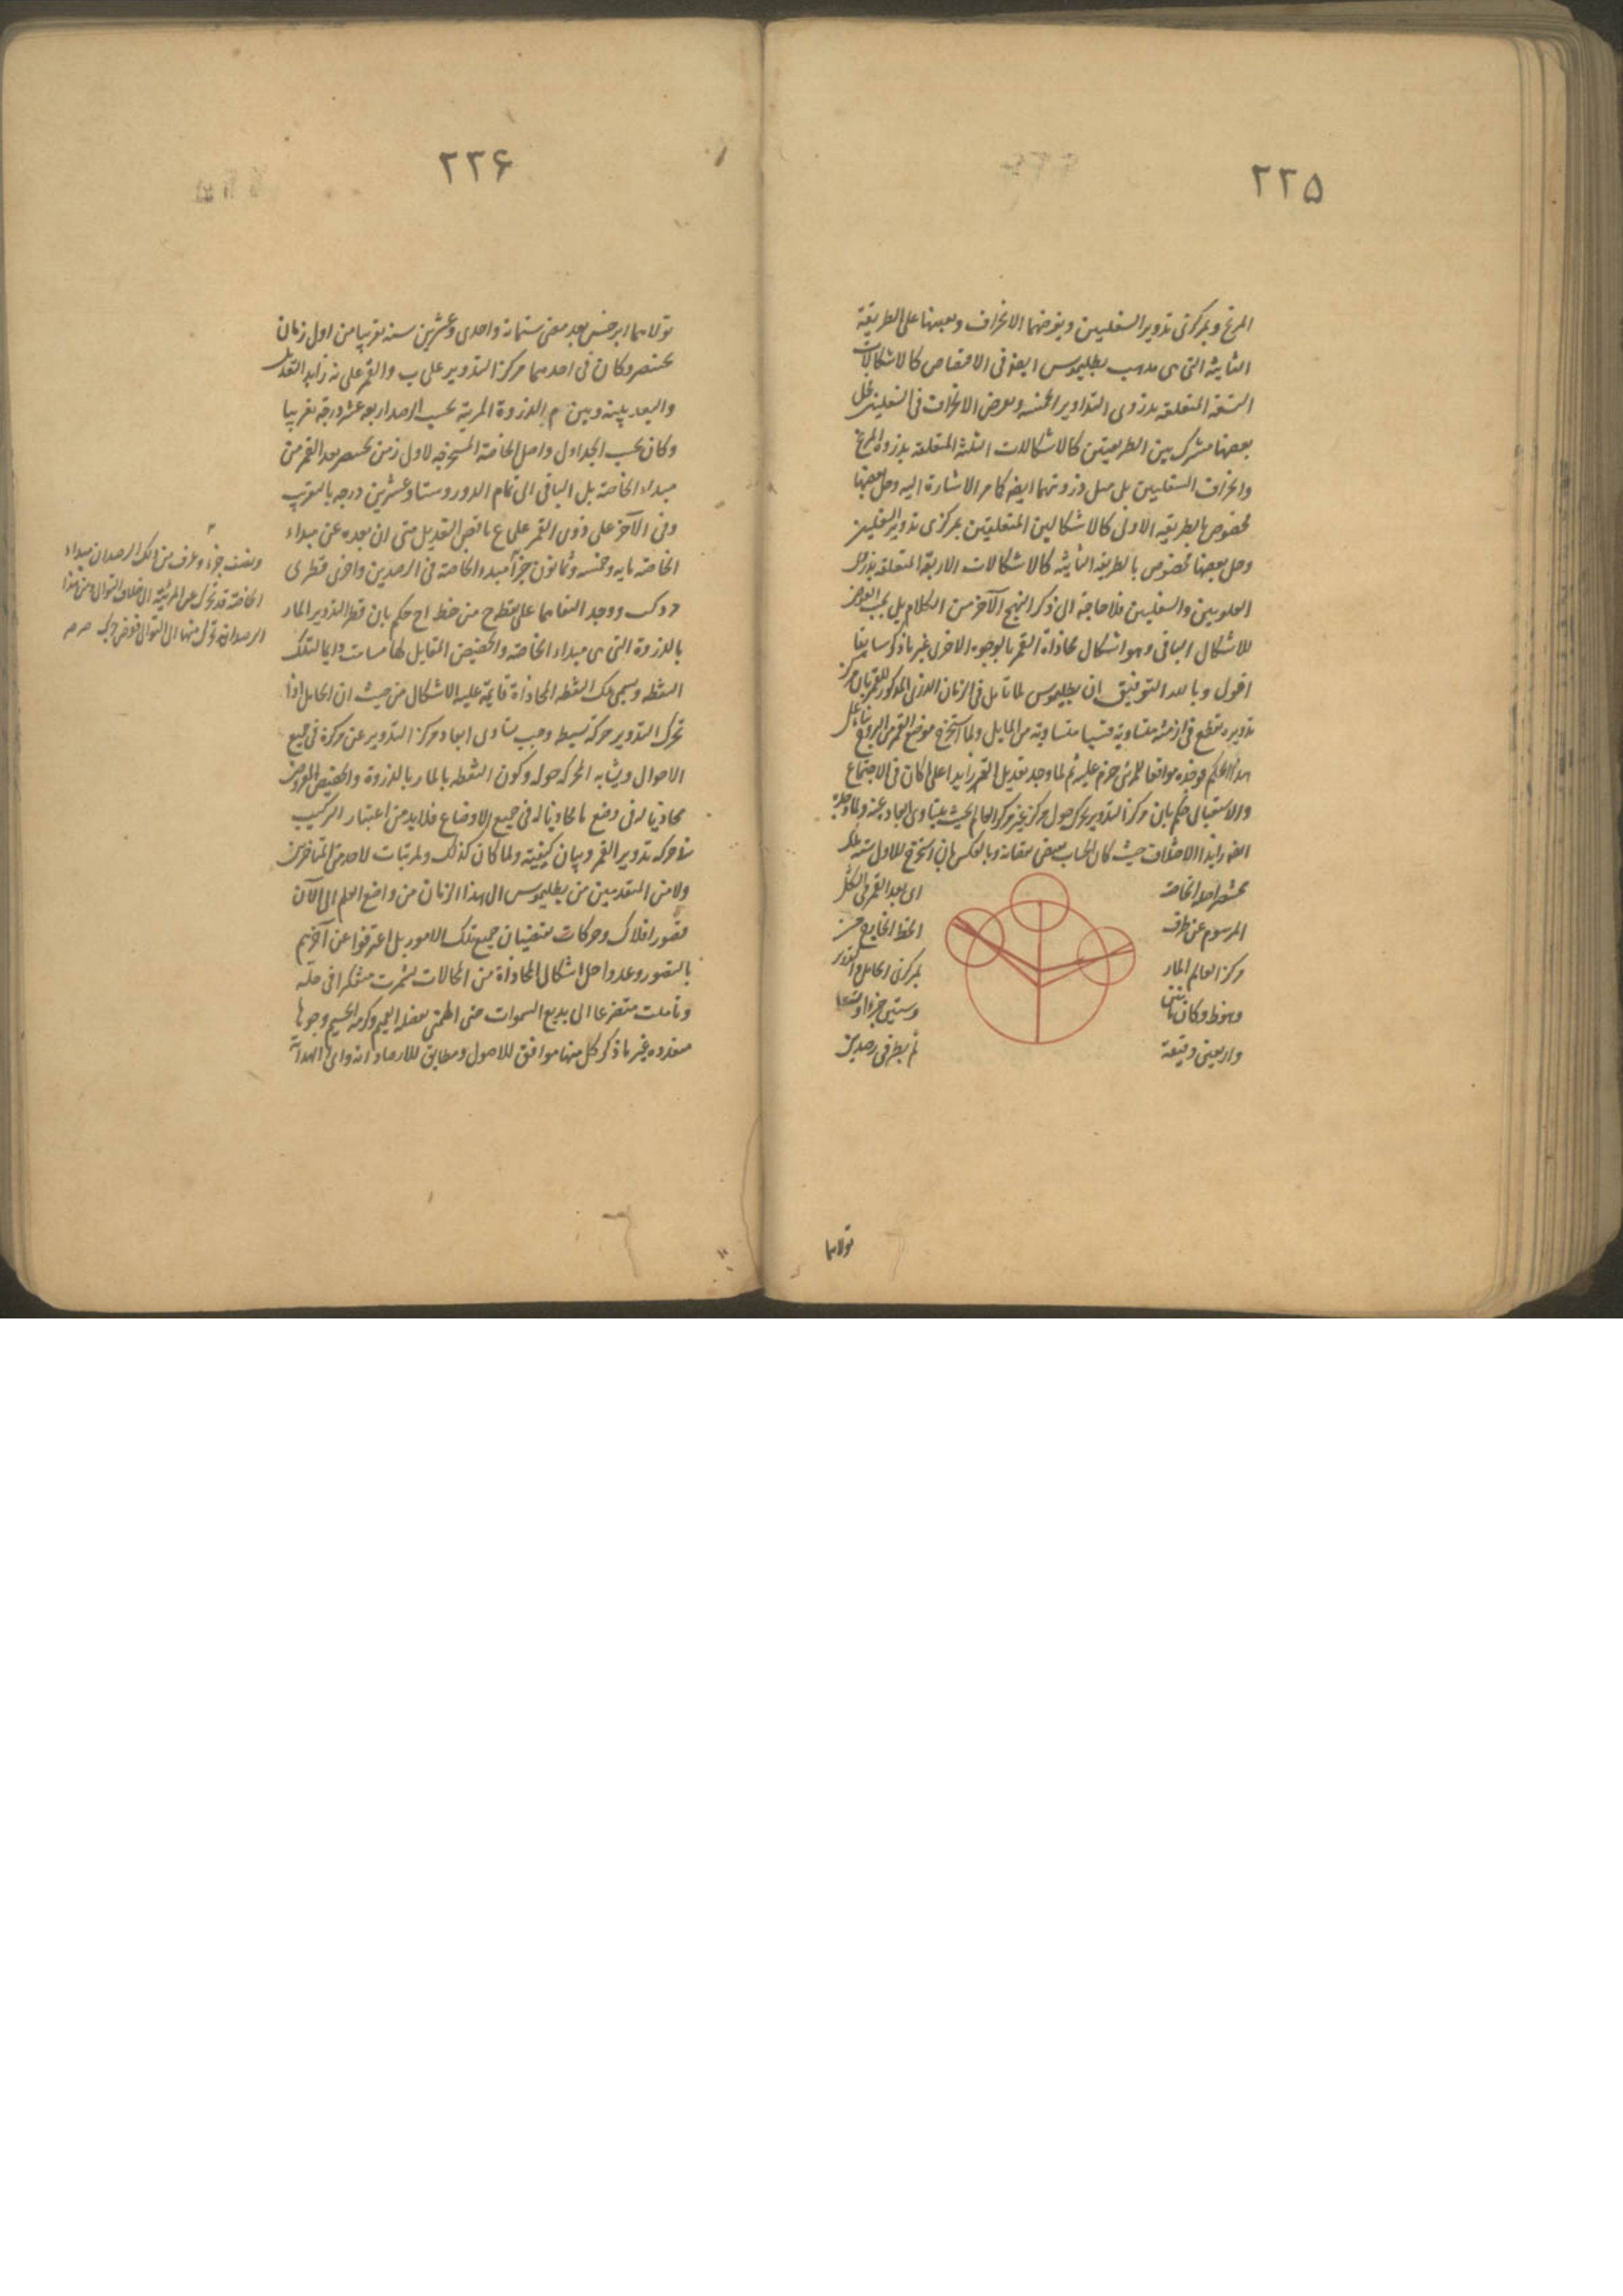 ٢٢٥
المريخ وبمركزى تدوير السفليين وبفرضهما الانحراف وبعضها على الطريقة
الثانية التى هى مذهب بطليموس ايضا فى الاقتصاص كالاشكالات
التسعة المتعلقة بذروى التداوير الخمسة وبعرض الانحراف فى السفليين
بعضها مشترك بين الطريقتين كالاشكالات الثلثة المتعلقة بذروة المريخ
وانحراف السفليين بل ميل ذروتهما ايضا كما مر الاشارة اليه وحل بعضها
مخصوص بالطريقة الاولى كالاشكالين المتعلقين بمركزى تدوير السفليين
وحل بعضها مخصوص بالطريقة الثانية كالاشكالات الاربعة المتعلقة
العلويين والسفليين فلا حاجة الى ذكر النهج الآخر من الكلام بل يجب
للاشكال الباقى وهو اشكال محاذاة القمر بالوجوه الاخرى غير ما ذكر سابقا
اقول وبالله التوفيق ان بطليموس لما تأمل فى الزمان الدورى المذكور للقمر بان مركز
تدويره يقطع فى ازمنة متساوية قسيا متساوية من المايل ولما استخرج موضع القمر من
هذا الحكم فوجده موافقا للمرئى جزم عليه ثم لما وجد تعديل القمر زايدا على ما كان فى الاجتماع
والاستقبال حكم بان مركز التدوير يتحرك حول مركز غير مركز العالم بحيث يتساوى ابعاده عنه
الاختلاف حيث كان الحساب يقتضى نقصانه وبالعكس بان استخرج للاول
بختنصر اصل الخاصة
اى بعد القمر فى الشكل
المرسوم عن طرف
الخط الخارج من
مركز العالم المار
بمركزى الحامل والتدوير
وهو ط وكان
وستين جزءا
واربعين دقيقة
ثم نظر فى رصدين
تولاهما
٢٢۶
تولاهما ابرخس بعد مضى ستمائة واحدى وعشرين سنة تقريبا من اول زمان
بختنصر وكان فى احدهما مركز التدوير على ب والقمر على نه زايد التعديل
والبعد بينه وبين م الذروة المرئية بحسب الرصد اربع عشر درجة تقريبا
وكان بحسب الجداول واصل الخاصة المستخرجة لاول زمن بختنصر بعد القمر من
مبداء الخاصة بل الباقى الى تمام الدور وستا وعشرين درجة بالتقريب
وفى الآخر على ذ وى القمر على ع ناقص التعديل حتى ان بعده عن مبداء
الخاصة مايه وخمسه وثمانون جزأ مبدء الخاصة فى الرصدين واخرى قطرى
ووجد التقاهما على نقطة ح من خط اح حكم بان قطر التدوير المار
بالذروة التى هى مبداء الخاصة والحضيض المقابل لها مسامت دايما لتلك
النقطه وسمى تلك النقطه المحاذاة قايمة عليه الاشكال من حيث ان الحامل اذا
تحرك التدوير حركة بسيطه وجب تساوى ابعاد مركز التدوير عن مركزه فى جميع
الاحوال وتشابه الحركه حوله وكون النقطه بالمار بالذروة والحضيض المفروض
محاذيا له فى وضع ما محاذيا له فى جميع الاوضاع فلا بد من اعتبار التركيب
فى حركه تدوير القمر وبيان كيفيته ولما كان كذلك ولم يتأت لاحد من المتأخرين
ولا من المتقدمين من بطليموس الى هذا الزمان من واضع العلم الى الآن
تصور افلاك وحركات مقتضيان جميع تلك الامور بل اعترفوا عن آخرهم
بالقصور وعدوا حل اشكال المحاذاة من المحالات شمرت متفكرا فى حله
وتأملت متضرعا الى بديع السموات حتى الهمنى بفضله العميم وكرمه الجسيم وجوها
متعدده غير ما ذكر كل منها موافق للاصول ومطابق للارصاد
ونصف جزء وعرف من ذلك الرصد ان مبداء
الخاصة قد تحرك عن المرئية الى خلاف التوالى ومن هذا
الرصد انه تحرك منها الى التوالى